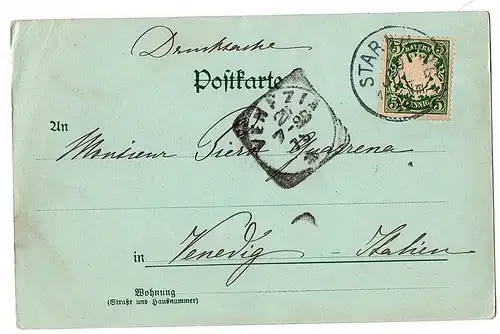 Drucksache
Postkarte
STAR
5 BAYERN 5
5 PFENNIG 5
VENEZIA
An
Monsieur Piero
in Venedig - Italien
Wohnung
(Straße und Hausnummer)